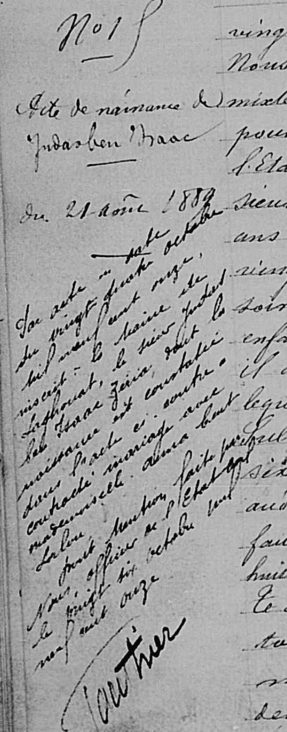 No 15
Acte de naissance de
Judas ben Isaac
du 21 août 1889
Par acte en date
du vingt quatre octobre
mil neuf cent onze,
inscrit à la mairie de
Laghouat, le sieur Judas
ben Isaac Zeïra, dont la
naissance est constatée
dans l'acte ci-contre
contracté mariage avec
mademoiselle Aïcha bent
Lalou
Dont mention faite par
Nous, officier de l'Etat civil
le vingt six octobre mil
neuf cent onze
Gauthier
ving
Nous
mixte
pour
l'Eta
sieur
ans
soir
enfa
il a
leque
six
fau
huit
te